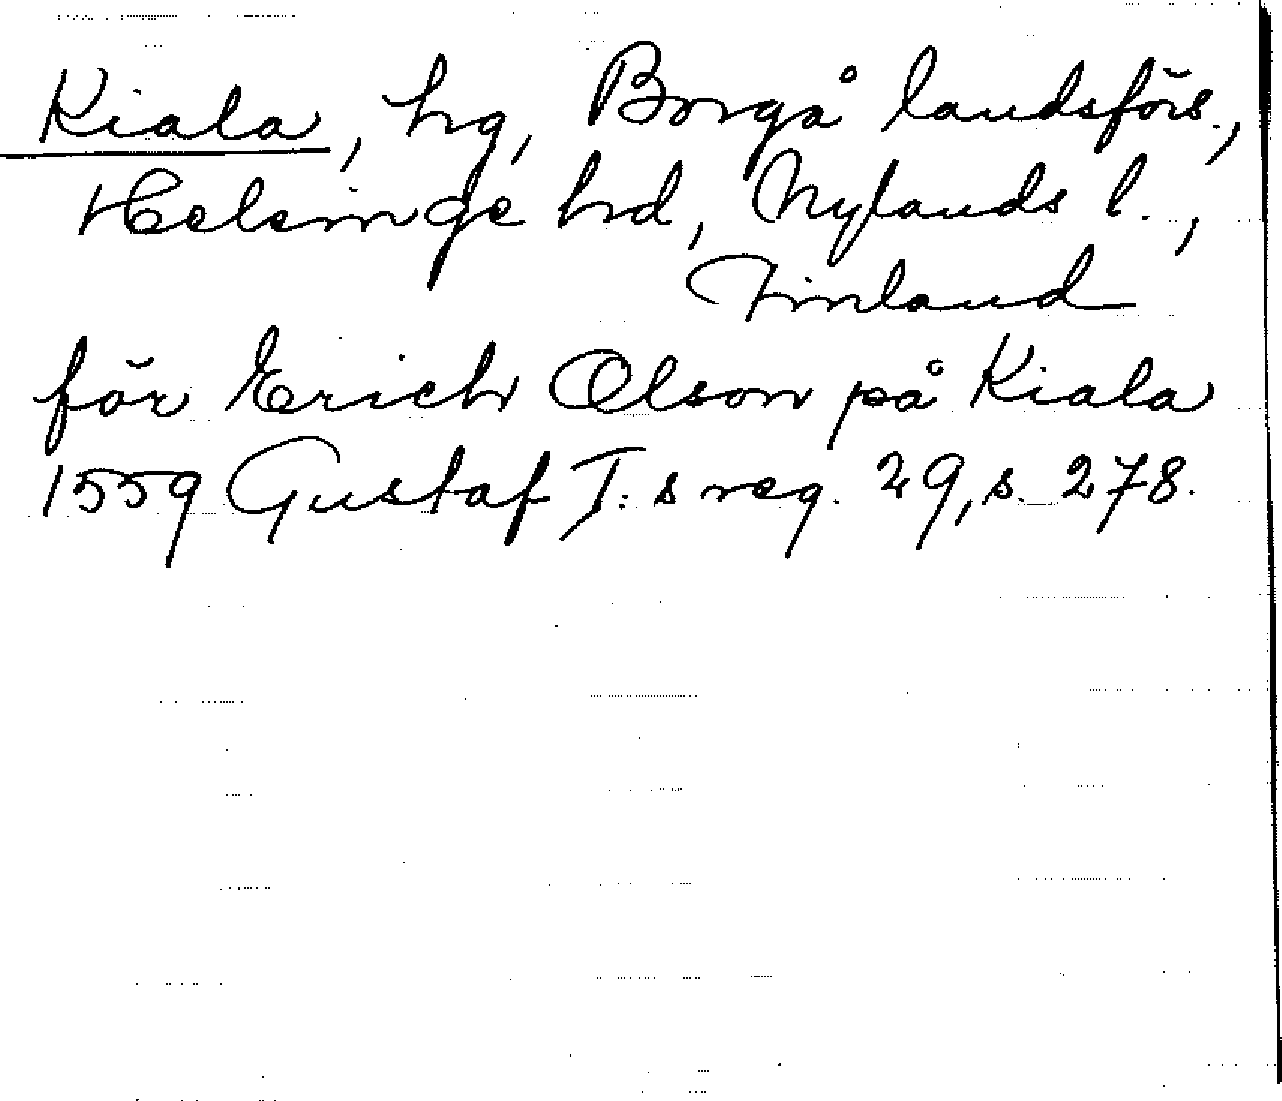 Kiala, hg, Borgå landsförs.,
Helsinge hd, Nylands l.,
Finland
för Erich Olson på Kiala
1559 Gustaf I:s reg. 29, s. 278.